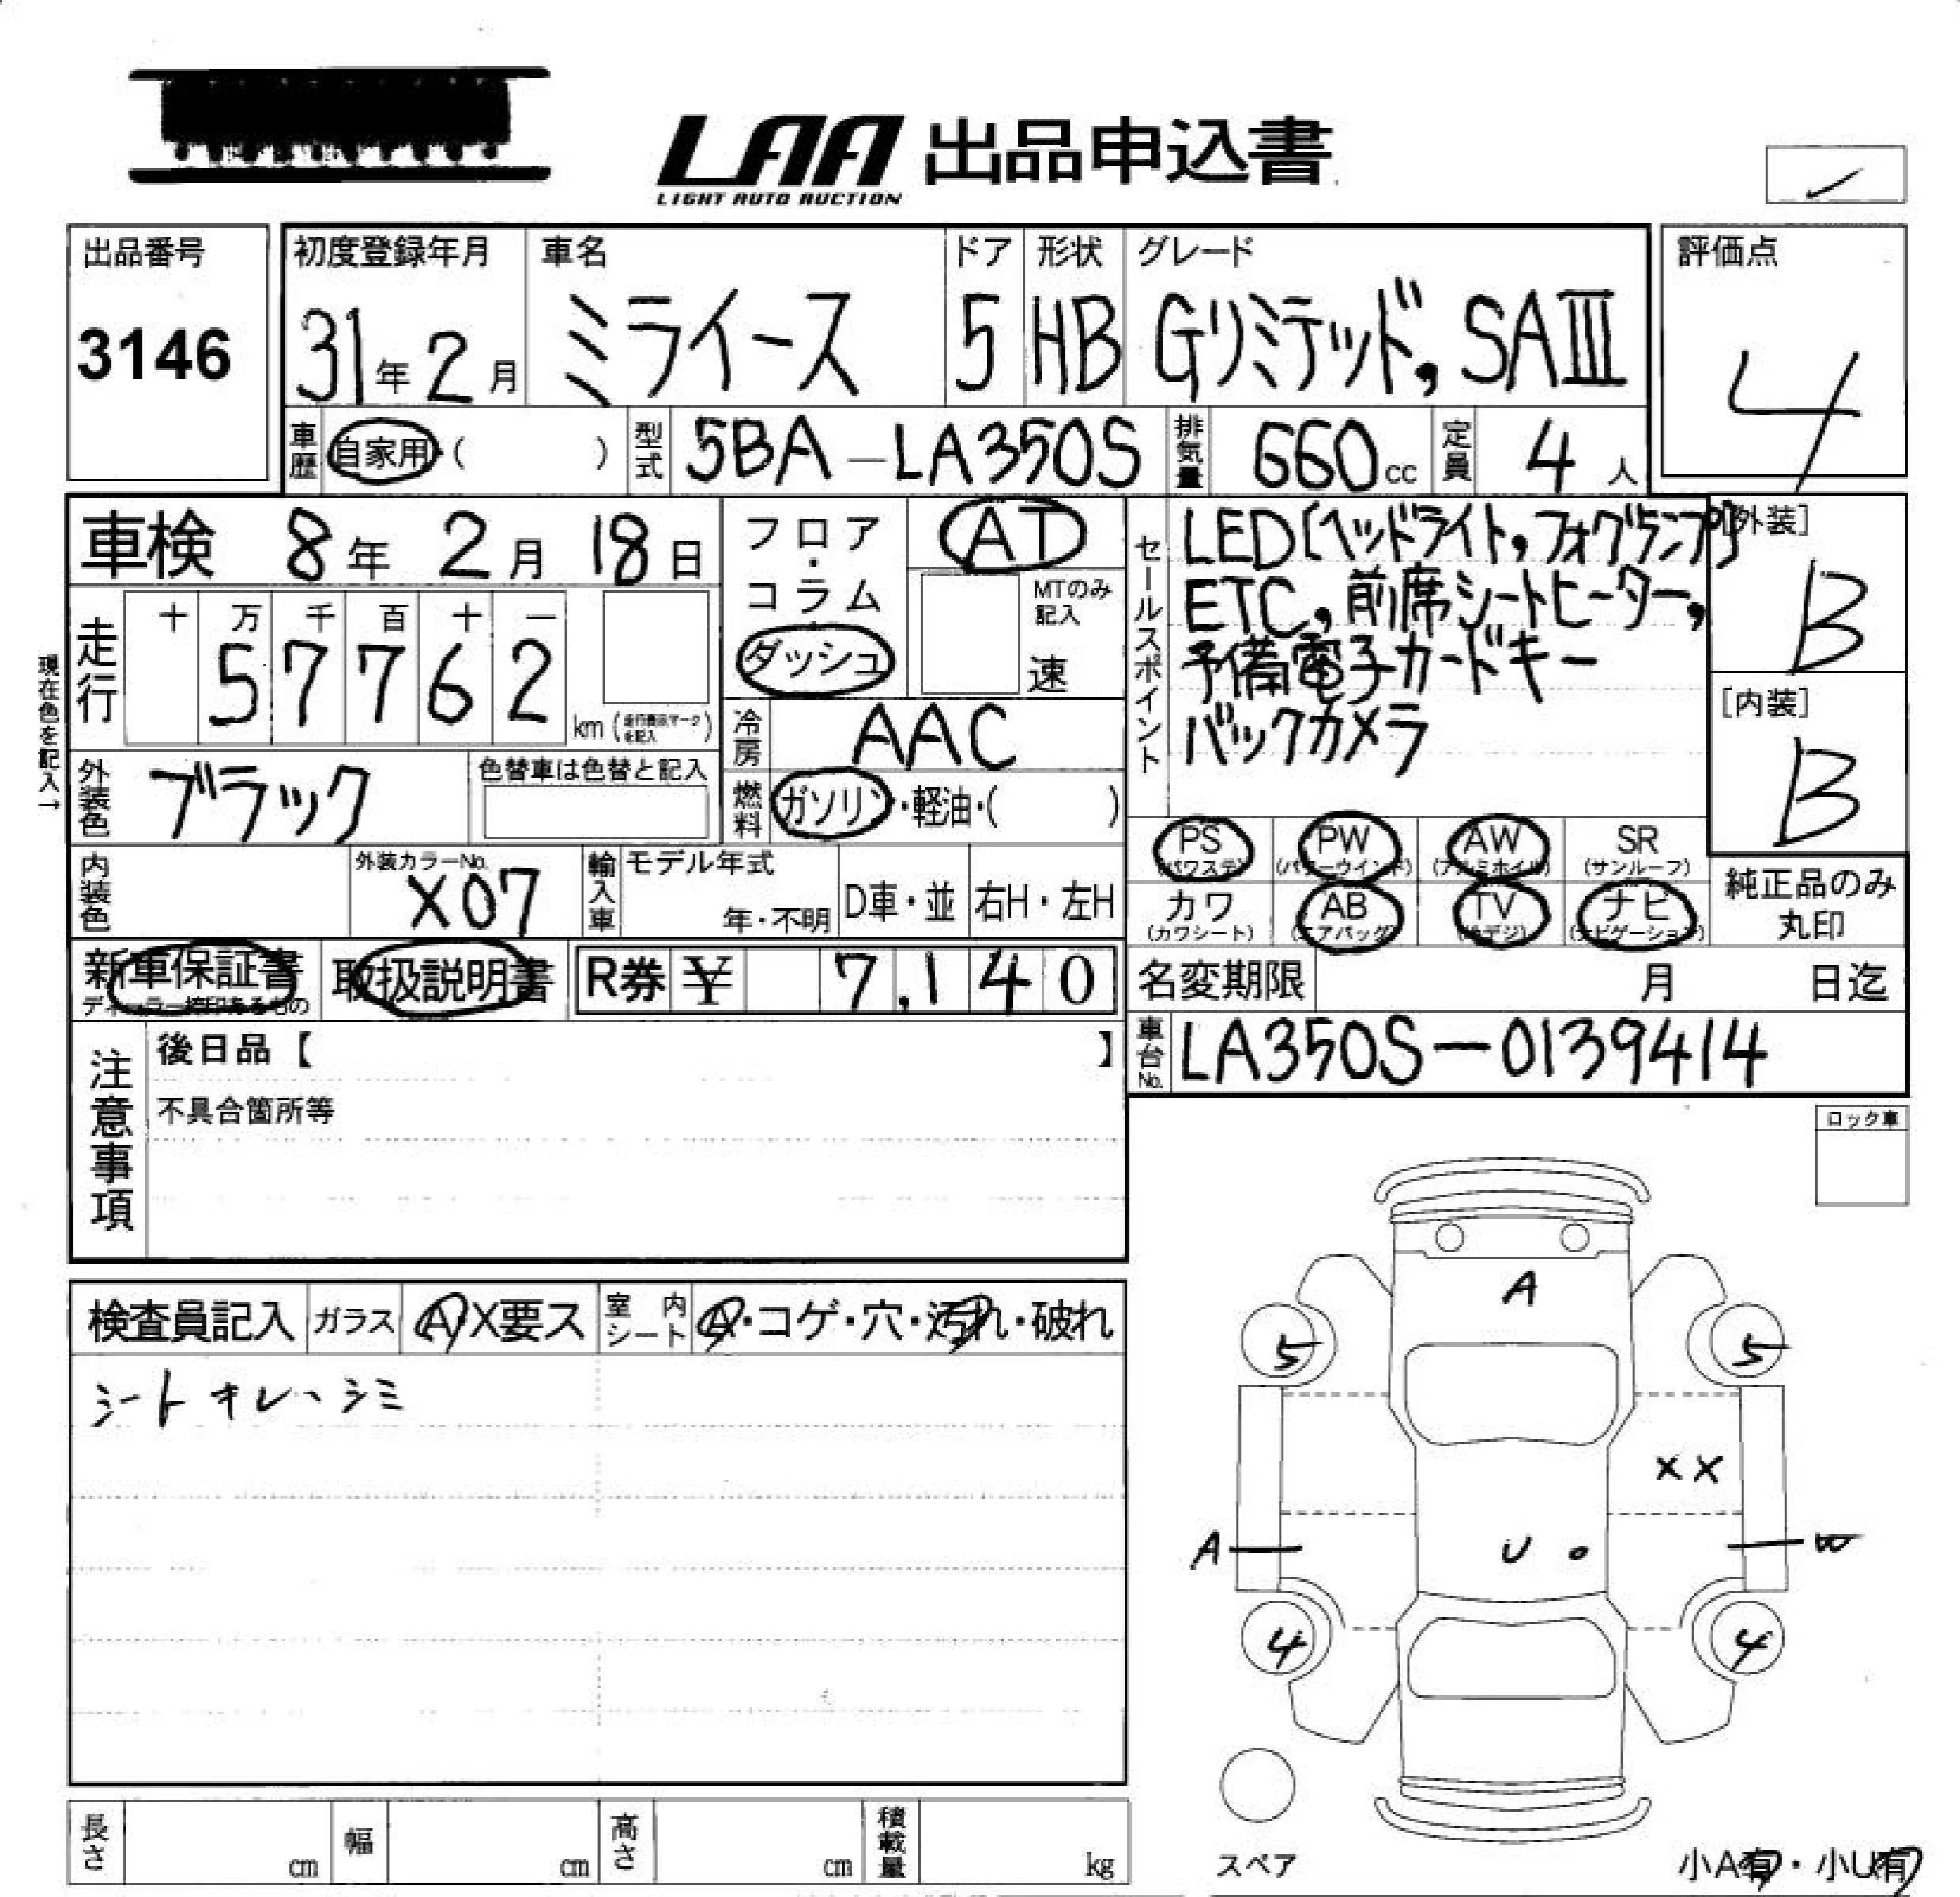 LAA 出品申込書
LIGHT AUTO AUCTION
出品番号
3146
初度登録年月 車名 ドア 形状 グレード
31年2月 ミライース 5 HB Gリミテッド, SAⅢ
評価点
4
車歴 自家用・( ) 型式 5BA-LA350S 排気量 660cc 定員 4人
車検 8年 2月 18日
フロア・コラム
ダッシュ
AT
MTのみ記入
速
セールスポイント
LED[ヘッドライト,フォグランプ]
ETC, 前席シートヒーター,
予備電子カードキー
バックカメラ
[外装]
B
[内装]
B
現在色を記入→
走行 十 万 千 百 十 一
57762 km (走行表示マークを記入)
冷房 AAC
外装色 ブラック 色替車は色替と記入
燃料 ガソリン・軽油・( )
PS PW AW SR
(パワステ) (パワーウインド) (アルミホイル) (サンルーフ)
カワ AB TV ナビ
(カワシート) (エアバッグ) (地デジ) (ナビゲーション)
純正品のみ
丸印
内装色 外装カラーNo. X07 輸入車 モデル年式 年・不明 D車・並 右H・左H
新車保証書 取扱説明書 R券 ¥ 7,140
ディーラー捺印あるもの
名変期限 月 日迄
車台No. LA350S-0139414
注意事項
後日品【 】
不具合箇所等
ロック車
検査員記入 ガラス A X要ス 室内シート A・コゲ・穴・汚れ・破れ
シート オレ、シミ
A
5 5
XX
A U • W
4 4
スペア
小A有・小U有
長さ cm 幅 cm 高さ cm 積載量 kg